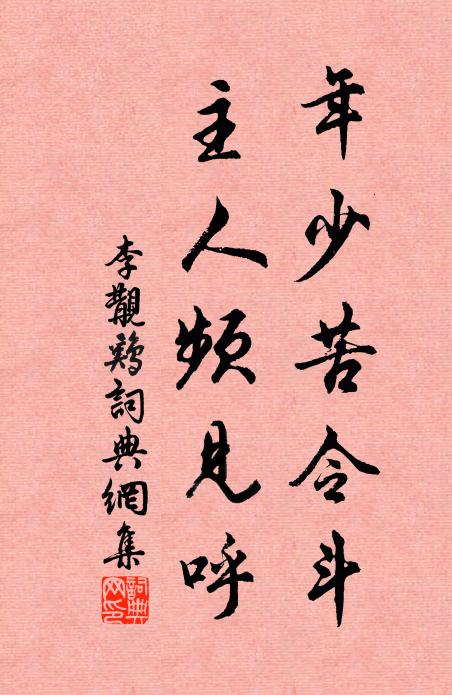 年少苦令斗
主人頻見呼
李覯鷄詞典網集
詞典
网印